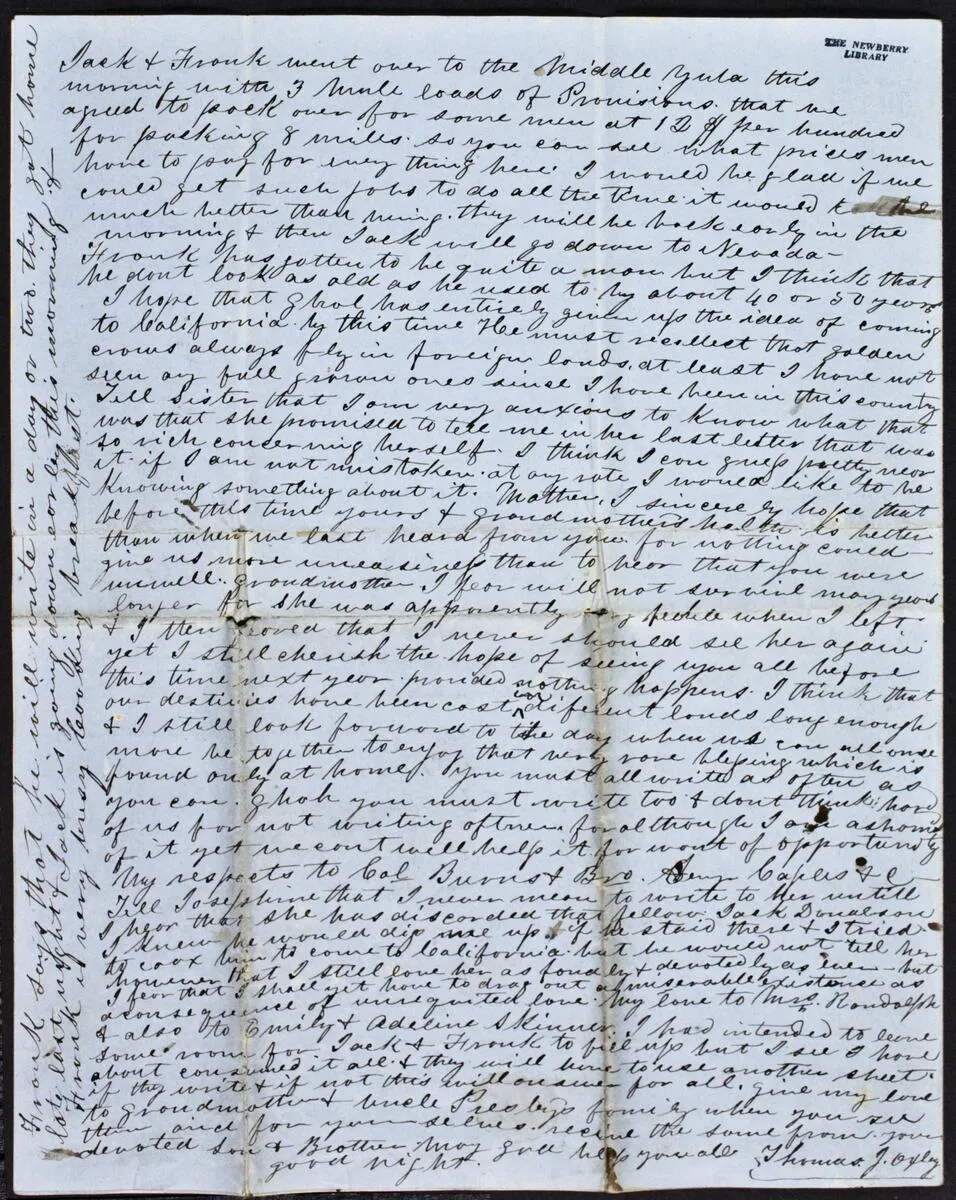 THE NEWBERRY
LIBRARY
Jack & Frank went over to the Middle Yuba this
morning with 3 Mule loads of Provisions that we
agreed to pack over for some men at 12 $ per hundred
for packing 8 miles. so you can see what prices men
have to pay for every thing here. I would be glad if we
could get such jobs to do all the time it would
much better than mining. they will be back early in the
morning & then Jack will go down to Nevada—
Frank has gotten to be quite a man but I think that
he dont look as old as he used to by about 40 or 50 years
I hope that has entirely given up the idea of coming
to California by this time He must recollect that golden
crows always fly in foreign lands, at least I have not
seen any full grown ones since I have been in this country
Tell Sister that I am very anxious to know what that
was that she promised to tell me in her last letter that was
so rich concerning herself. I think I can guess pretty near
it if I am not mistaken. at any rate I would like to be
knowing something about it. Mother, I sincerely hope that
before this time yours & grandmothers health is better
than when we last heard from you. for nothing could
give us more uneasiness than to hear that you were
unwell. grandmother I fear will not survive many years
longer for she was apparently very feeble when I left
& I then that I never should see her again
yet I still cherish the hope of seeing you all before
this time next year. provided nothing happens. I think that
our destinies have been cast in different lands long enough
& I still look forward to the day when we can all once
more be together to enjoy that very rare blessing which is
found only at home. You must all write as often as
you can. you must write too & dont think hard
of us for not writing oftner for although I am ashamed
of it yet we cant well help it for want of opportunity
My respects to Col Burns & Bro. Caples & C—
Tell Josephine that I never mean to write to her untill
I hear that she has discarded that fellow Jack Donalson
I knew he would dip me up if he staid there & I tried
to coax him to come to California but he would not tell her
however that I still love her as fondly & devotedly as ever— but
I fear that I shall yet have to drag out a miserable existence as
a consequence of unrequited love. My love to Mrs. Randolph
& also to Emily & Adeline Skinner. I had intended to leave
some room for Jack & Frank to fill up but I see I have
about consumed it all & they will have to use another sheet.
if they write & if not this will answer for all. give my love
to grandmother & uncle Presley's family when you see
them and for yourselves receive the same from your
devoted son & Brother May god help you all
good night. Thomas. J. Oxley
Frank says that he will write in a day or two. they got home
late last night & Jack is going down early this morning &
Frank is very busy cooking breakfast.